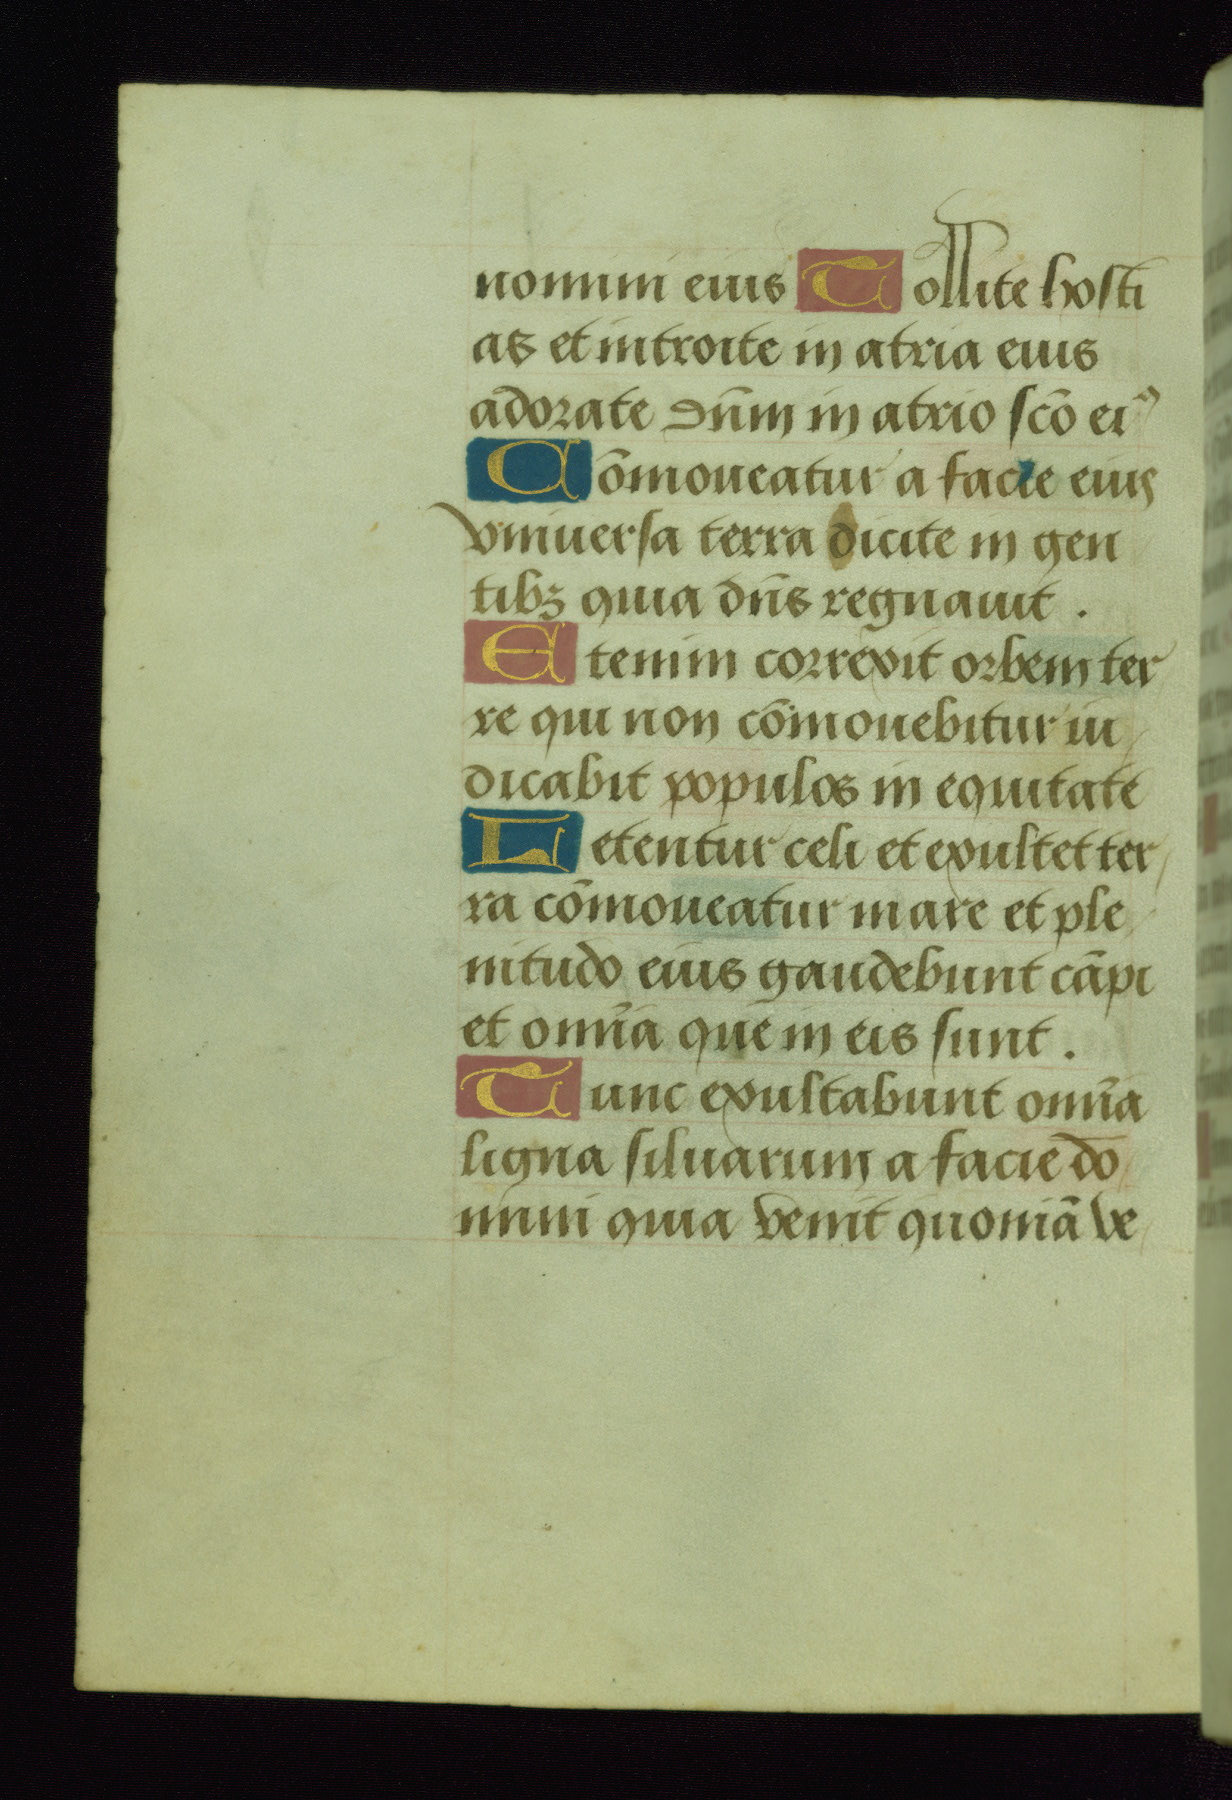 nomini eius Tollite hosti
as et introite in atria eius
adorate dn̄m in atrio sc̄o ei⁹
Cōmoueatur a facie eius
vniuersa terra dicite in gen
tibꝫ quia dn̄s regnauit .
Etenim correxit orbem ter
re qui non cōmouebitur iu
dicabit populos in equitate
Letentur celi et exultet ter
ra cōmoueatur mare et ple
nitudo eius gaudebunt cāpi
et omīa que in eis sunt .
Tunc exultabunt omīa
ligna siluarum a facie do
mini quia venit quoniā ve